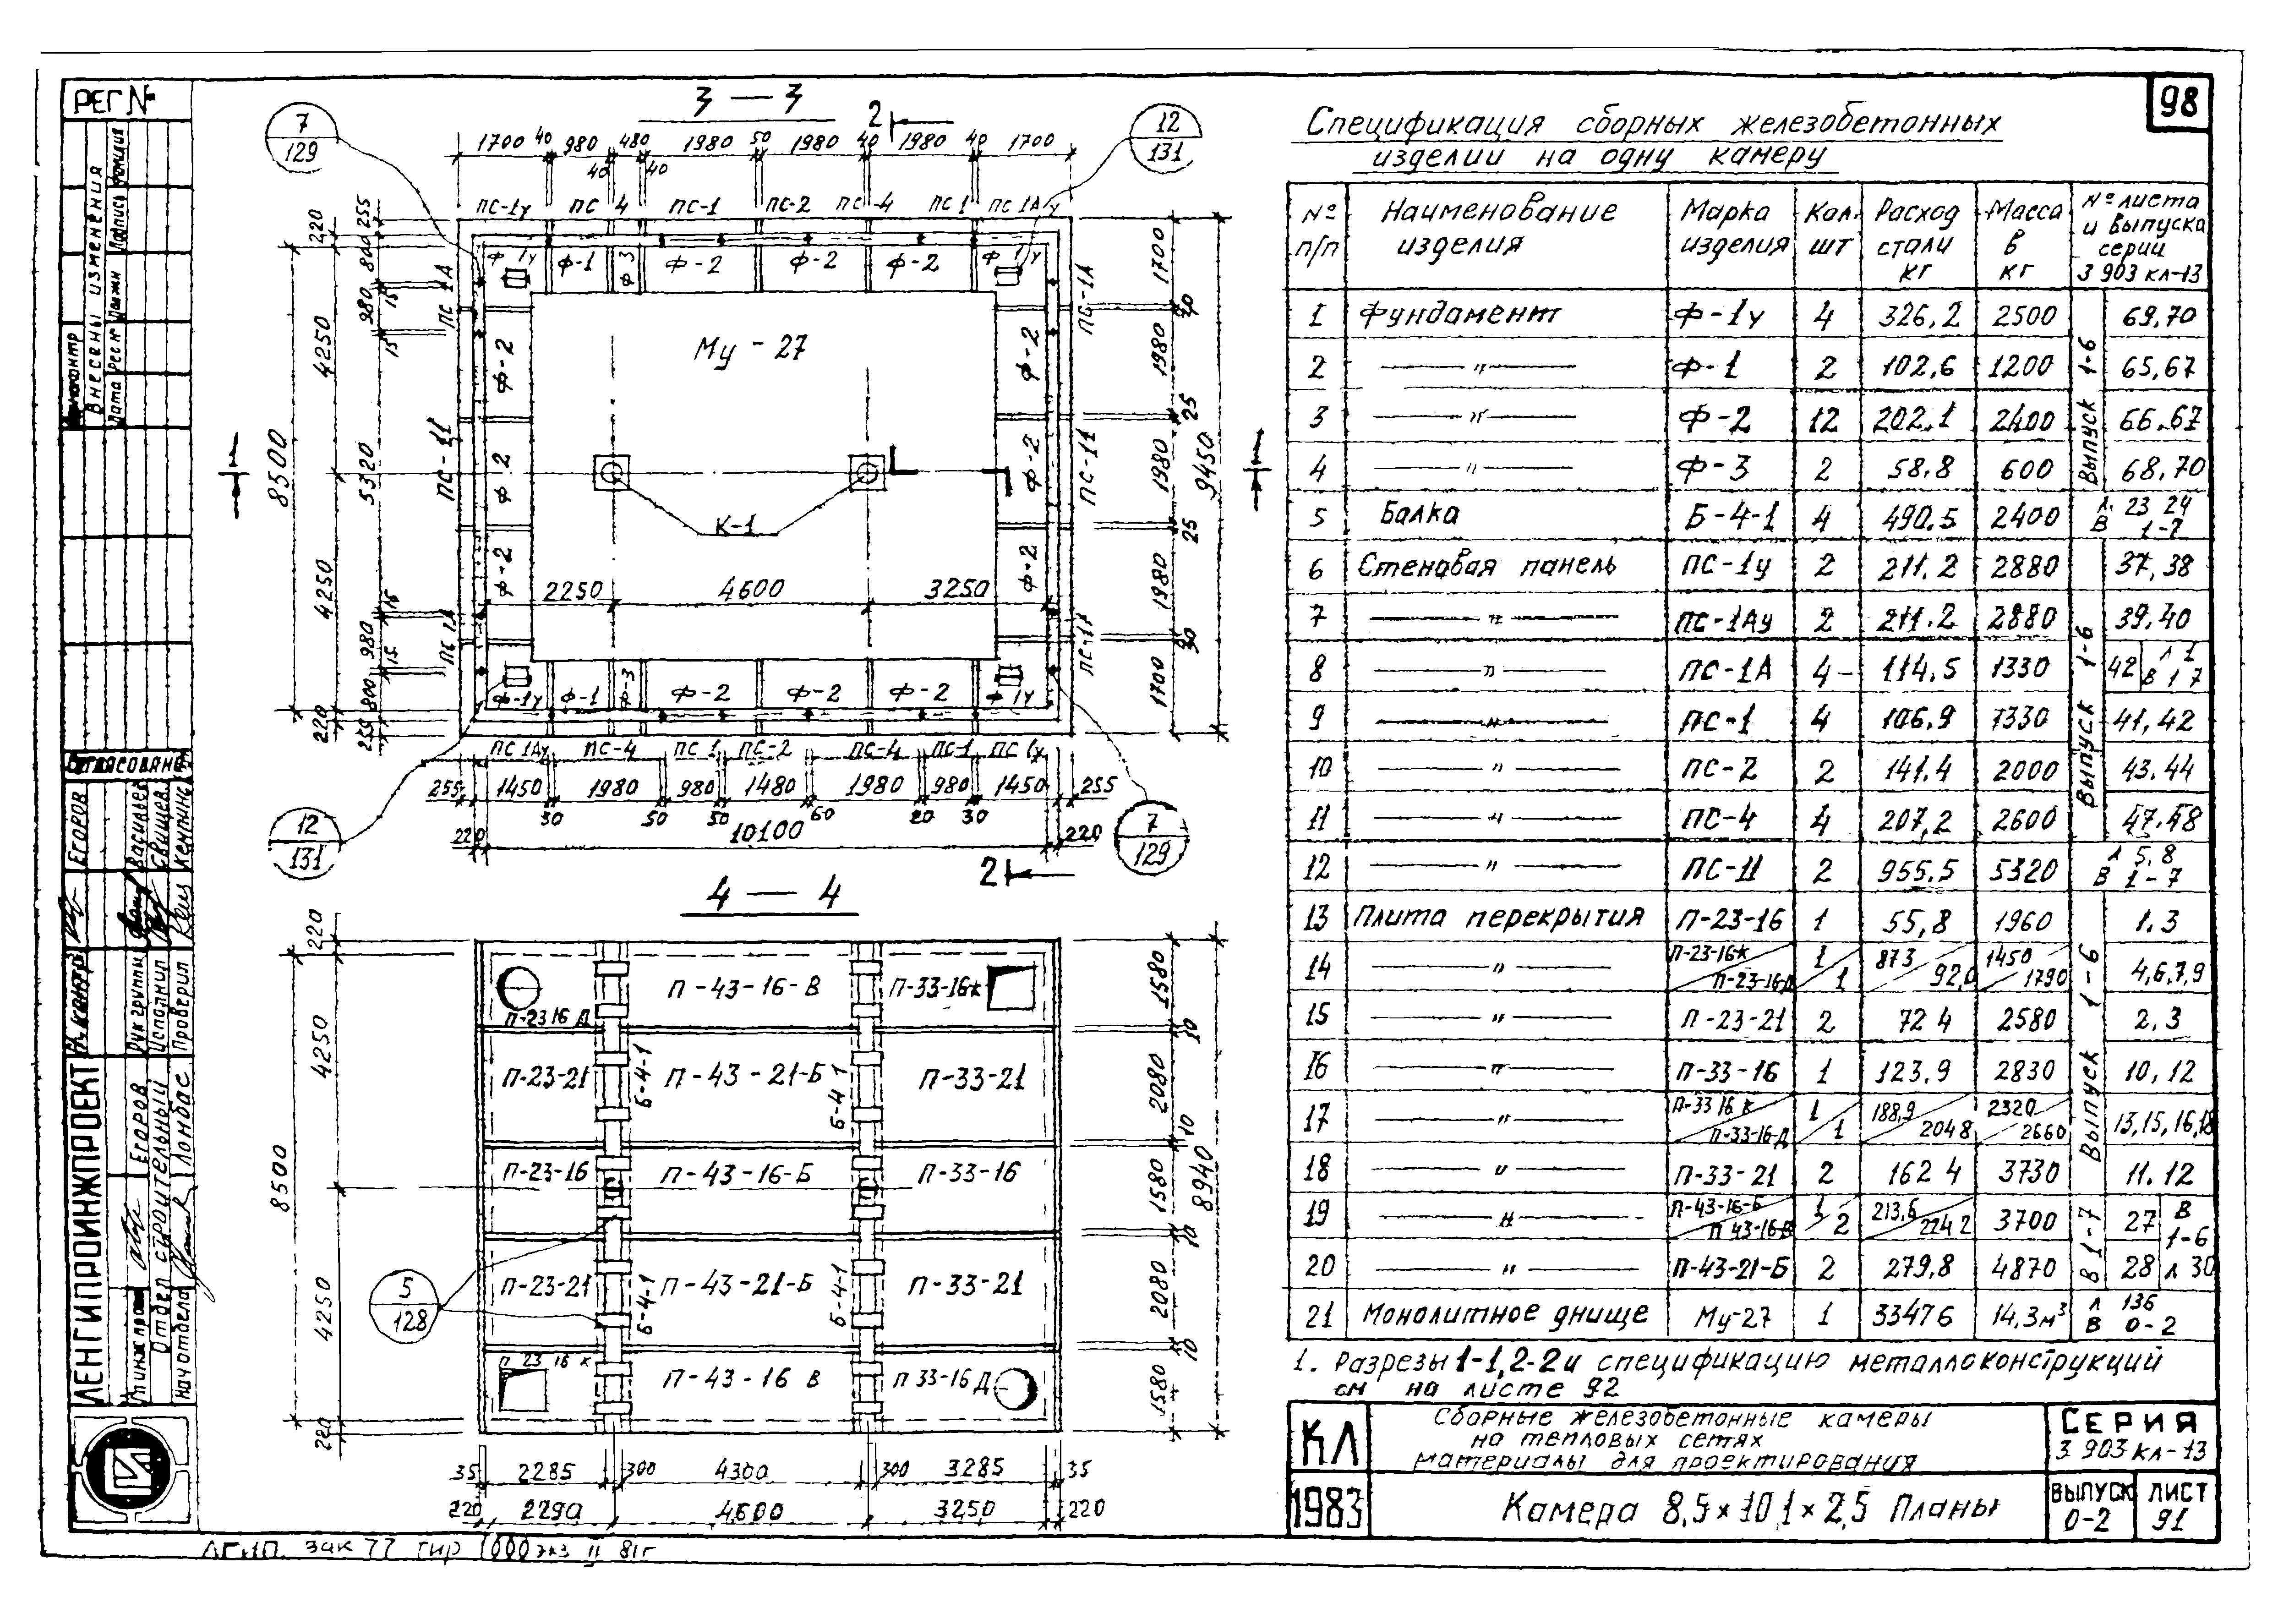 98
РЕГ №
Внесены изменения
СОГЛАСОВАНО
ЕГОРОВ
Васильев
Свищев
Кемпинс
Рук группы
Исполнил
Проверил
ЛЕНГИПРОИНЖПРОЕКТ
ЕГОРОВ
Отдел строительный
Нач отдела
Ломбас
3 — 3
7
129
12
131
2
1700 40 980 480 1980 50 1980 40 1980 40 1700
40 40
ПС-1у ПС 4 ПС-1 ПС-2 ПС-4 ПС 1 ПС 1Ау
Ф-1у Ф-1 Ф-3 Ф-2 Ф-2 Ф-2 Ф 1у
220 255 800 980 15 15 4250 5320 8500 4250 15 980 15 800 255 220
ПС 1А ПС-11 ПС 1А
Ф-2 Ф-2 Ф-2
Му-27
К-1
2250 4600 3250
Ф-2 Ф-2 Ф-2
ПС-1А ПС-11 ПС-1А
1700 30 1980 25 1980 25 1980 30 1700
9450
1 1
Ф-1у Ф-1 Ф-3 Ф-2 Ф-2 Ф-2 Ф 1у
ПС 1Ау ПС-4 ПС 1 ПС-2 ПС-4 ПС-1 ПС 1у
255 1450 1980 980 1480 1980 980 1450 255
30 50 50 60 20 30
220 10100 220
12
131
7
129
2
4 — 4
220 4250 8500 4250 220
П-23 16 Д П-43-16-В П-33-16к
П-23-21 Б-4-1 П-43-21-Б Б-4 1 П-33-21
П-23-16 П-43-16-Б П-33-16
П-23-21 Б-4-1 П-43-21-Б Б-4-1 П-33-21
П 23 16 к П-43-16 В П 33-16 Д
5
128
1580 10 2080 10 1580 10 2080 10 1580
8940
35 2285 300 4300 300 3285 35
220 2290 4600 3250 220
Спецификация сборных железобетонных
изделии на одну камеру
№ п/п Наименование изделия Марка изделия Кол. шт Расход стали кг Масса в кг № листа и выпуска серии 3 903 кл-13
1 Фундамент Ф-1у 4 326,2 2500 69,70
2 —〃— Ф-1 2 102,6 1200 65,67
3 —〃— Ф-2 12 202,1 2400 66.67
4 —〃— Ф-3 2 58,8 600 68,70
Выпуск 1-6
5 Балка Б-4-1 4 490.5 2400 л. 23 24 В 1-7
6 Стеновая панель ПС-1у 2 211.2 2880 37,38
7 —〃— ПС-1Ау 2 211.2 2880 39,40
8 —〃— ПС-1А 4 114,5 1330 42 л 1 В 1 7
9 —〃— ПС-1 4 106,9 1330 41,42
10 —〃— ПС-2 2 141.4 2000 43,44
11 —〃— ПС-4 4 207,2 2600 47.48
Выпуск 1-6
12 —〃— ПС-11 2 955,5 5320 л 5,8 В 1-7
13 Плита перекрытия П-23-16 1 55,8 1960 1.3
14 —〃— П-23-16к П-23-16-Д 1 1 87.3 92,0 1450 1790 4,6,7,9
15 —〃— П-23-21 2 72 4 2580 2,3
16 —〃— П-33-16 1 123,9 2830 10,12
17 —〃— П-33 16 к П-33-16-Д 1 1 188,9 204 8 2320 2660 13,15,16,18
18 —〃— П-33-21 2 162 4 3730 11.12
Выпуск 1-6
19 —〃— П-43-16-Б П 43-16-В 1 2 213,6 224 2 3700 27 В 1-6
20 —〃— П-43-21-Б 2 279,8 4870 28 л 30
В 1-7
21 Монолитное днище Му-27 1 3347 6 14,3 м³ л 136 В 0-2
1. Разрезы 1-1, 2-2 и спецификацию металлоконструкций
см на листе 92
КЛ
1983
Сборные железобетонные камеры
на тепловых сетях
материалы для проектирования
СЕРИЯ
3 903 кл-13
Камера 8,5×10,1×2,5 Планы
ВЫПУСК
0-2
ЛИСТ
91
зак 77 тир 1000 экз II 81г